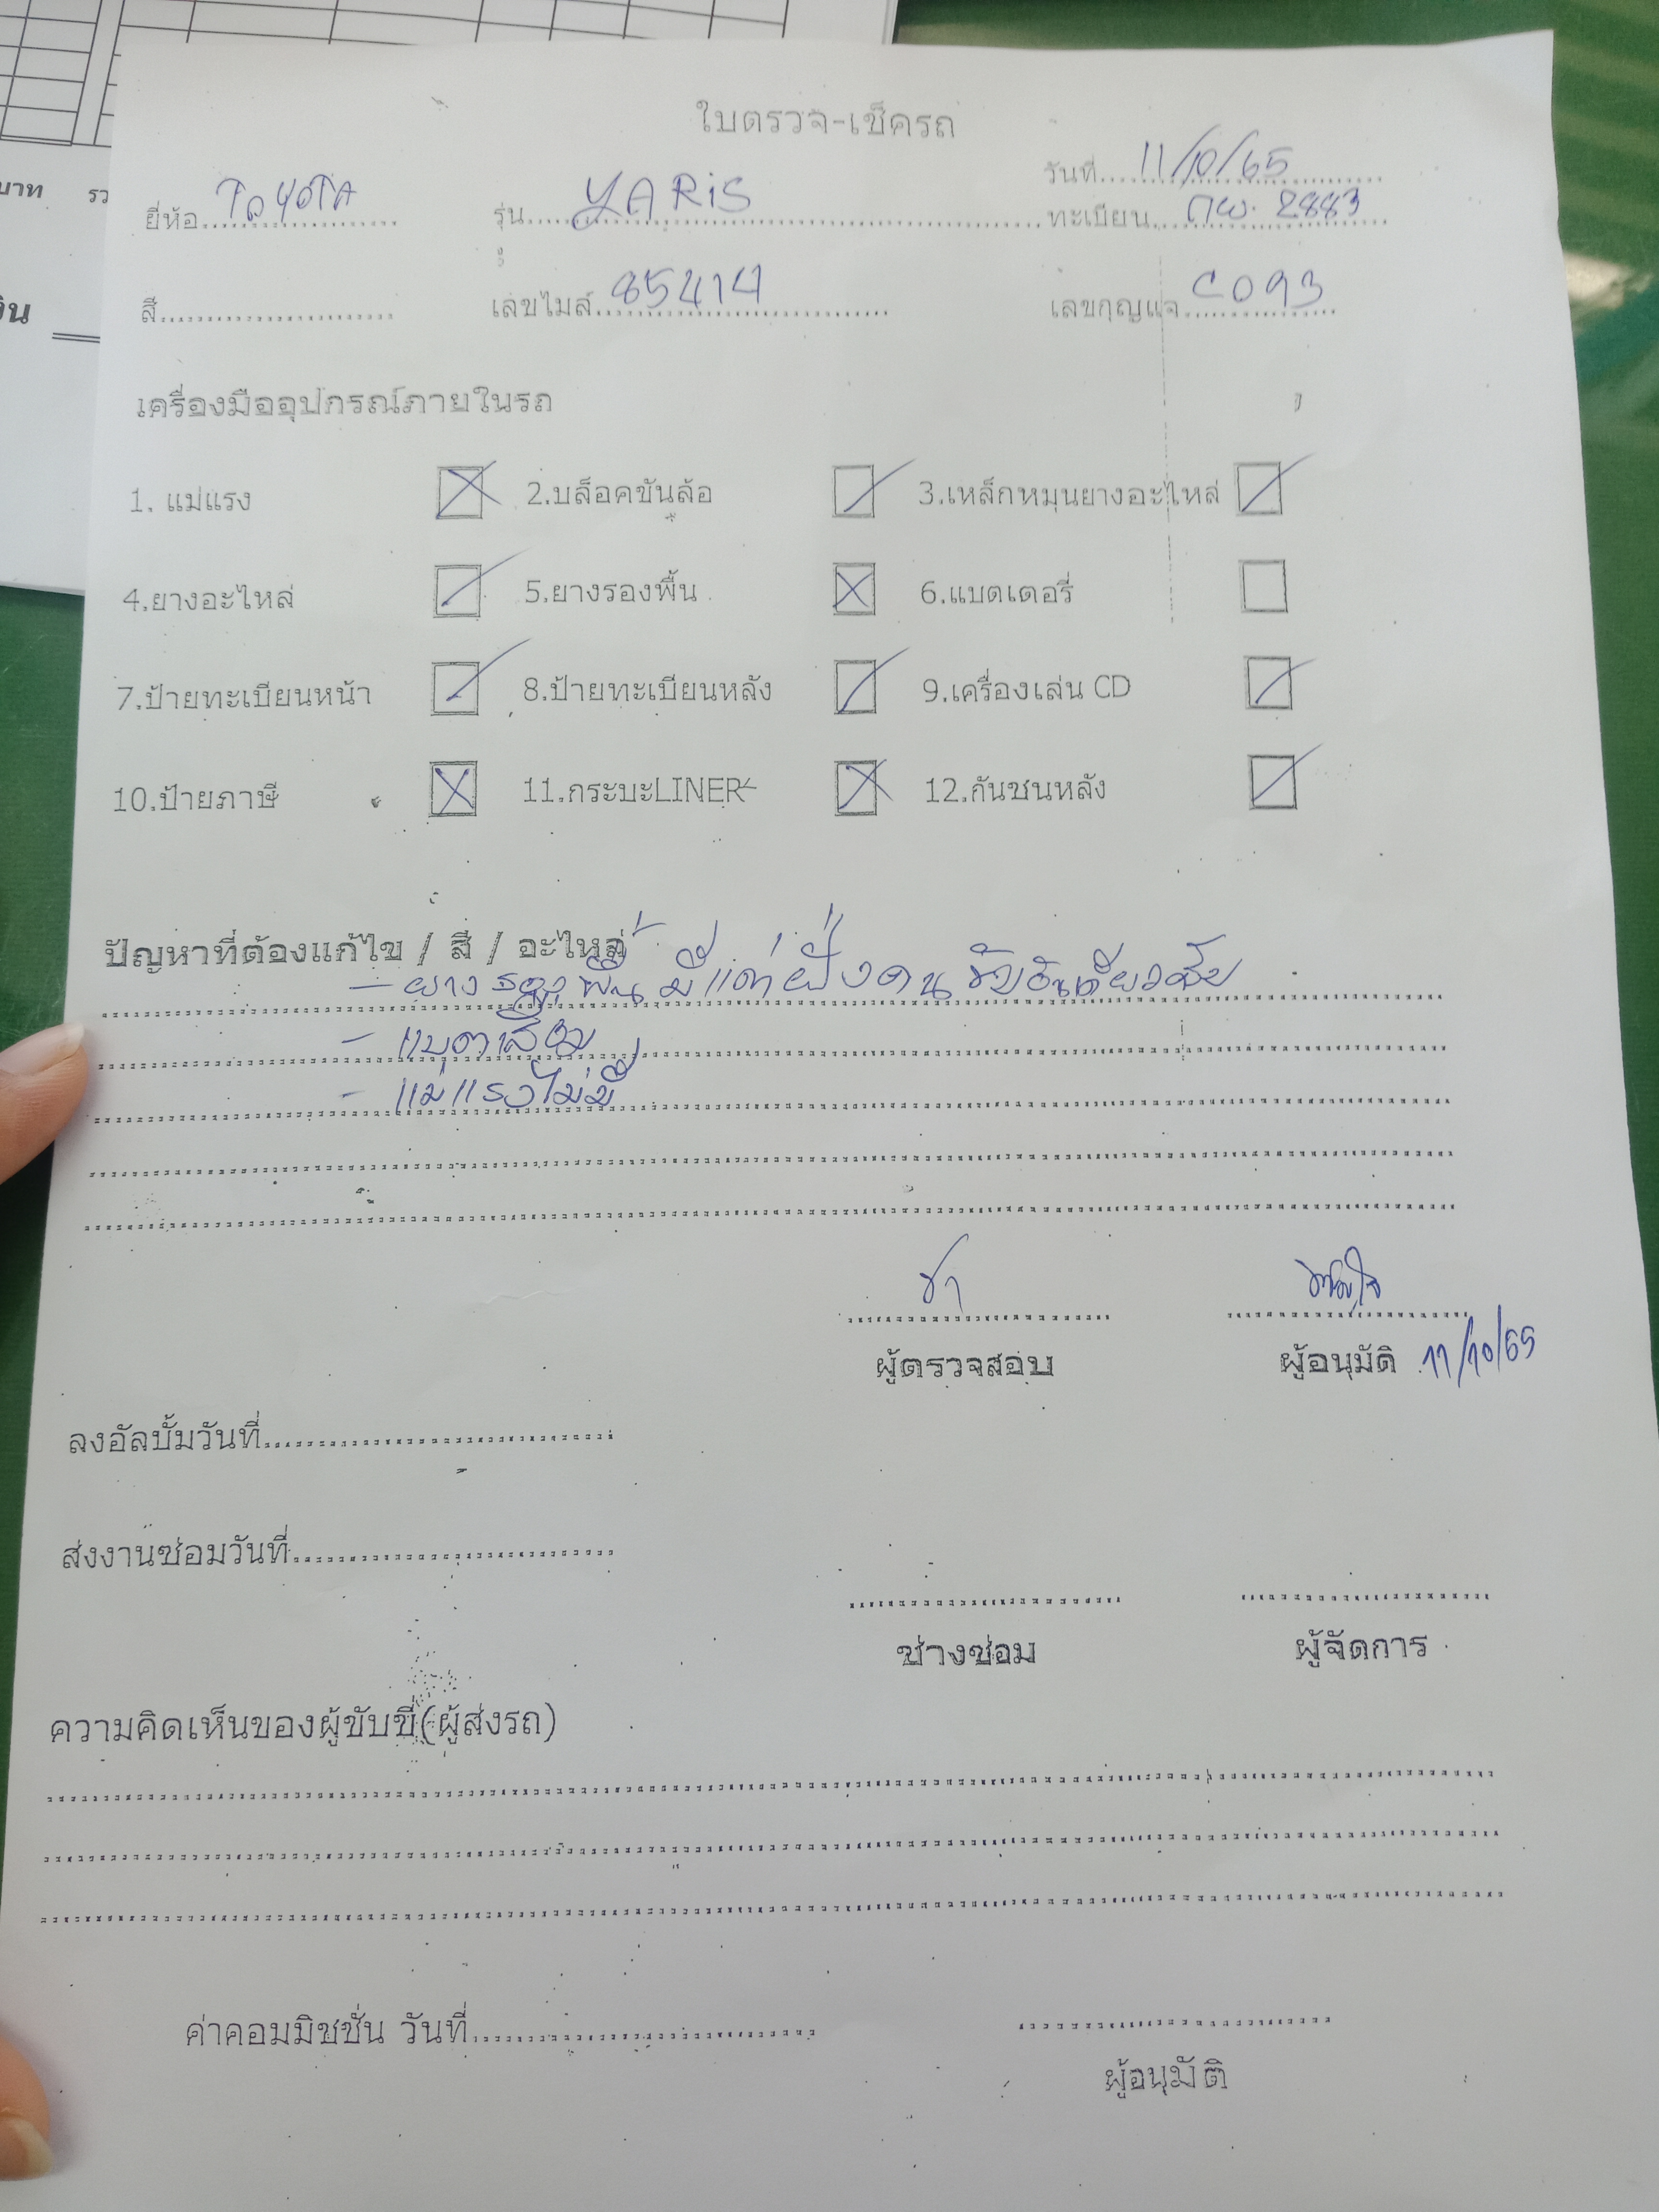 บาท รว
ใบตรวจ-เช็ครถ
วันที่ 11/10/65
ยี่ห้อ TOYOTA รุ่น YARiS ทะเบียน กพ. 2883
สี เลขไมล์ 85414 เลขกุญแจ C093
เครื่องมืออุปกรณ์ภายในรถ
1. แม่แรง 2.บล็อคขันล้อ 3.เหล็กหมุนยางอะไหล่
4.ยางอะไหล่ 5.ยางรองพื้น 6.แบตเตอรี่
7.ป้ายทะเบียนหน้า 8.ป้ายทะเบียนหลัง 9.เครื่องเล่น CD
10.ป้ายภาษี 11.กระบะLINER 12.กันชนหลัง
ปัญหาที่ต้องแก้ไข / สี / อะไหล่
- ยางรองพื้น มีแต่ฝั่งคนขับอันเดียว
- แบตเสื่อม
- แม่แรงไม่มี
ผู้ตรวจสอบ ผู้อนุมัติ 11/10/65
ลงอัลบั้มวันที่
ส่งงานซ่อมวันที่
ช่างซ่อม ผู้จัดการ
ความคิดเห็นของผู้ขับขี่(ผู้ส่งรถ)
ค่าคอมมิชชั่น วันที่
ผู้อนุมัติ